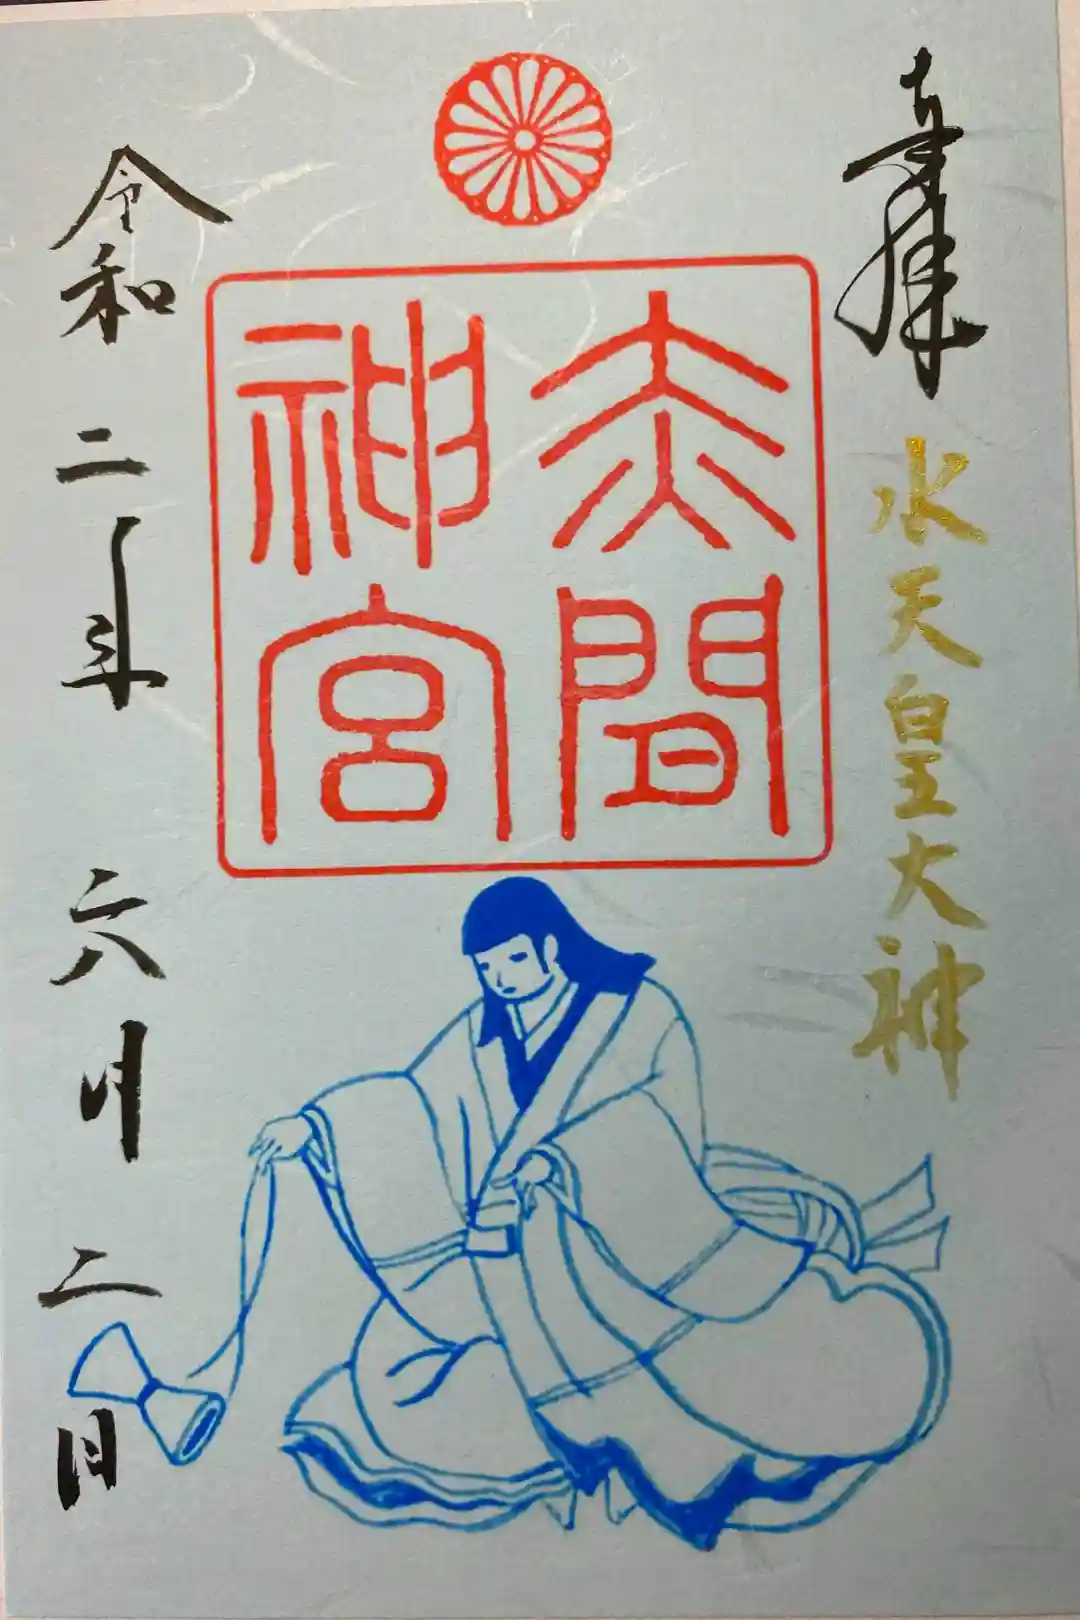 奉拝 水天皇大神
赤間
神宮
令和二年六月二日